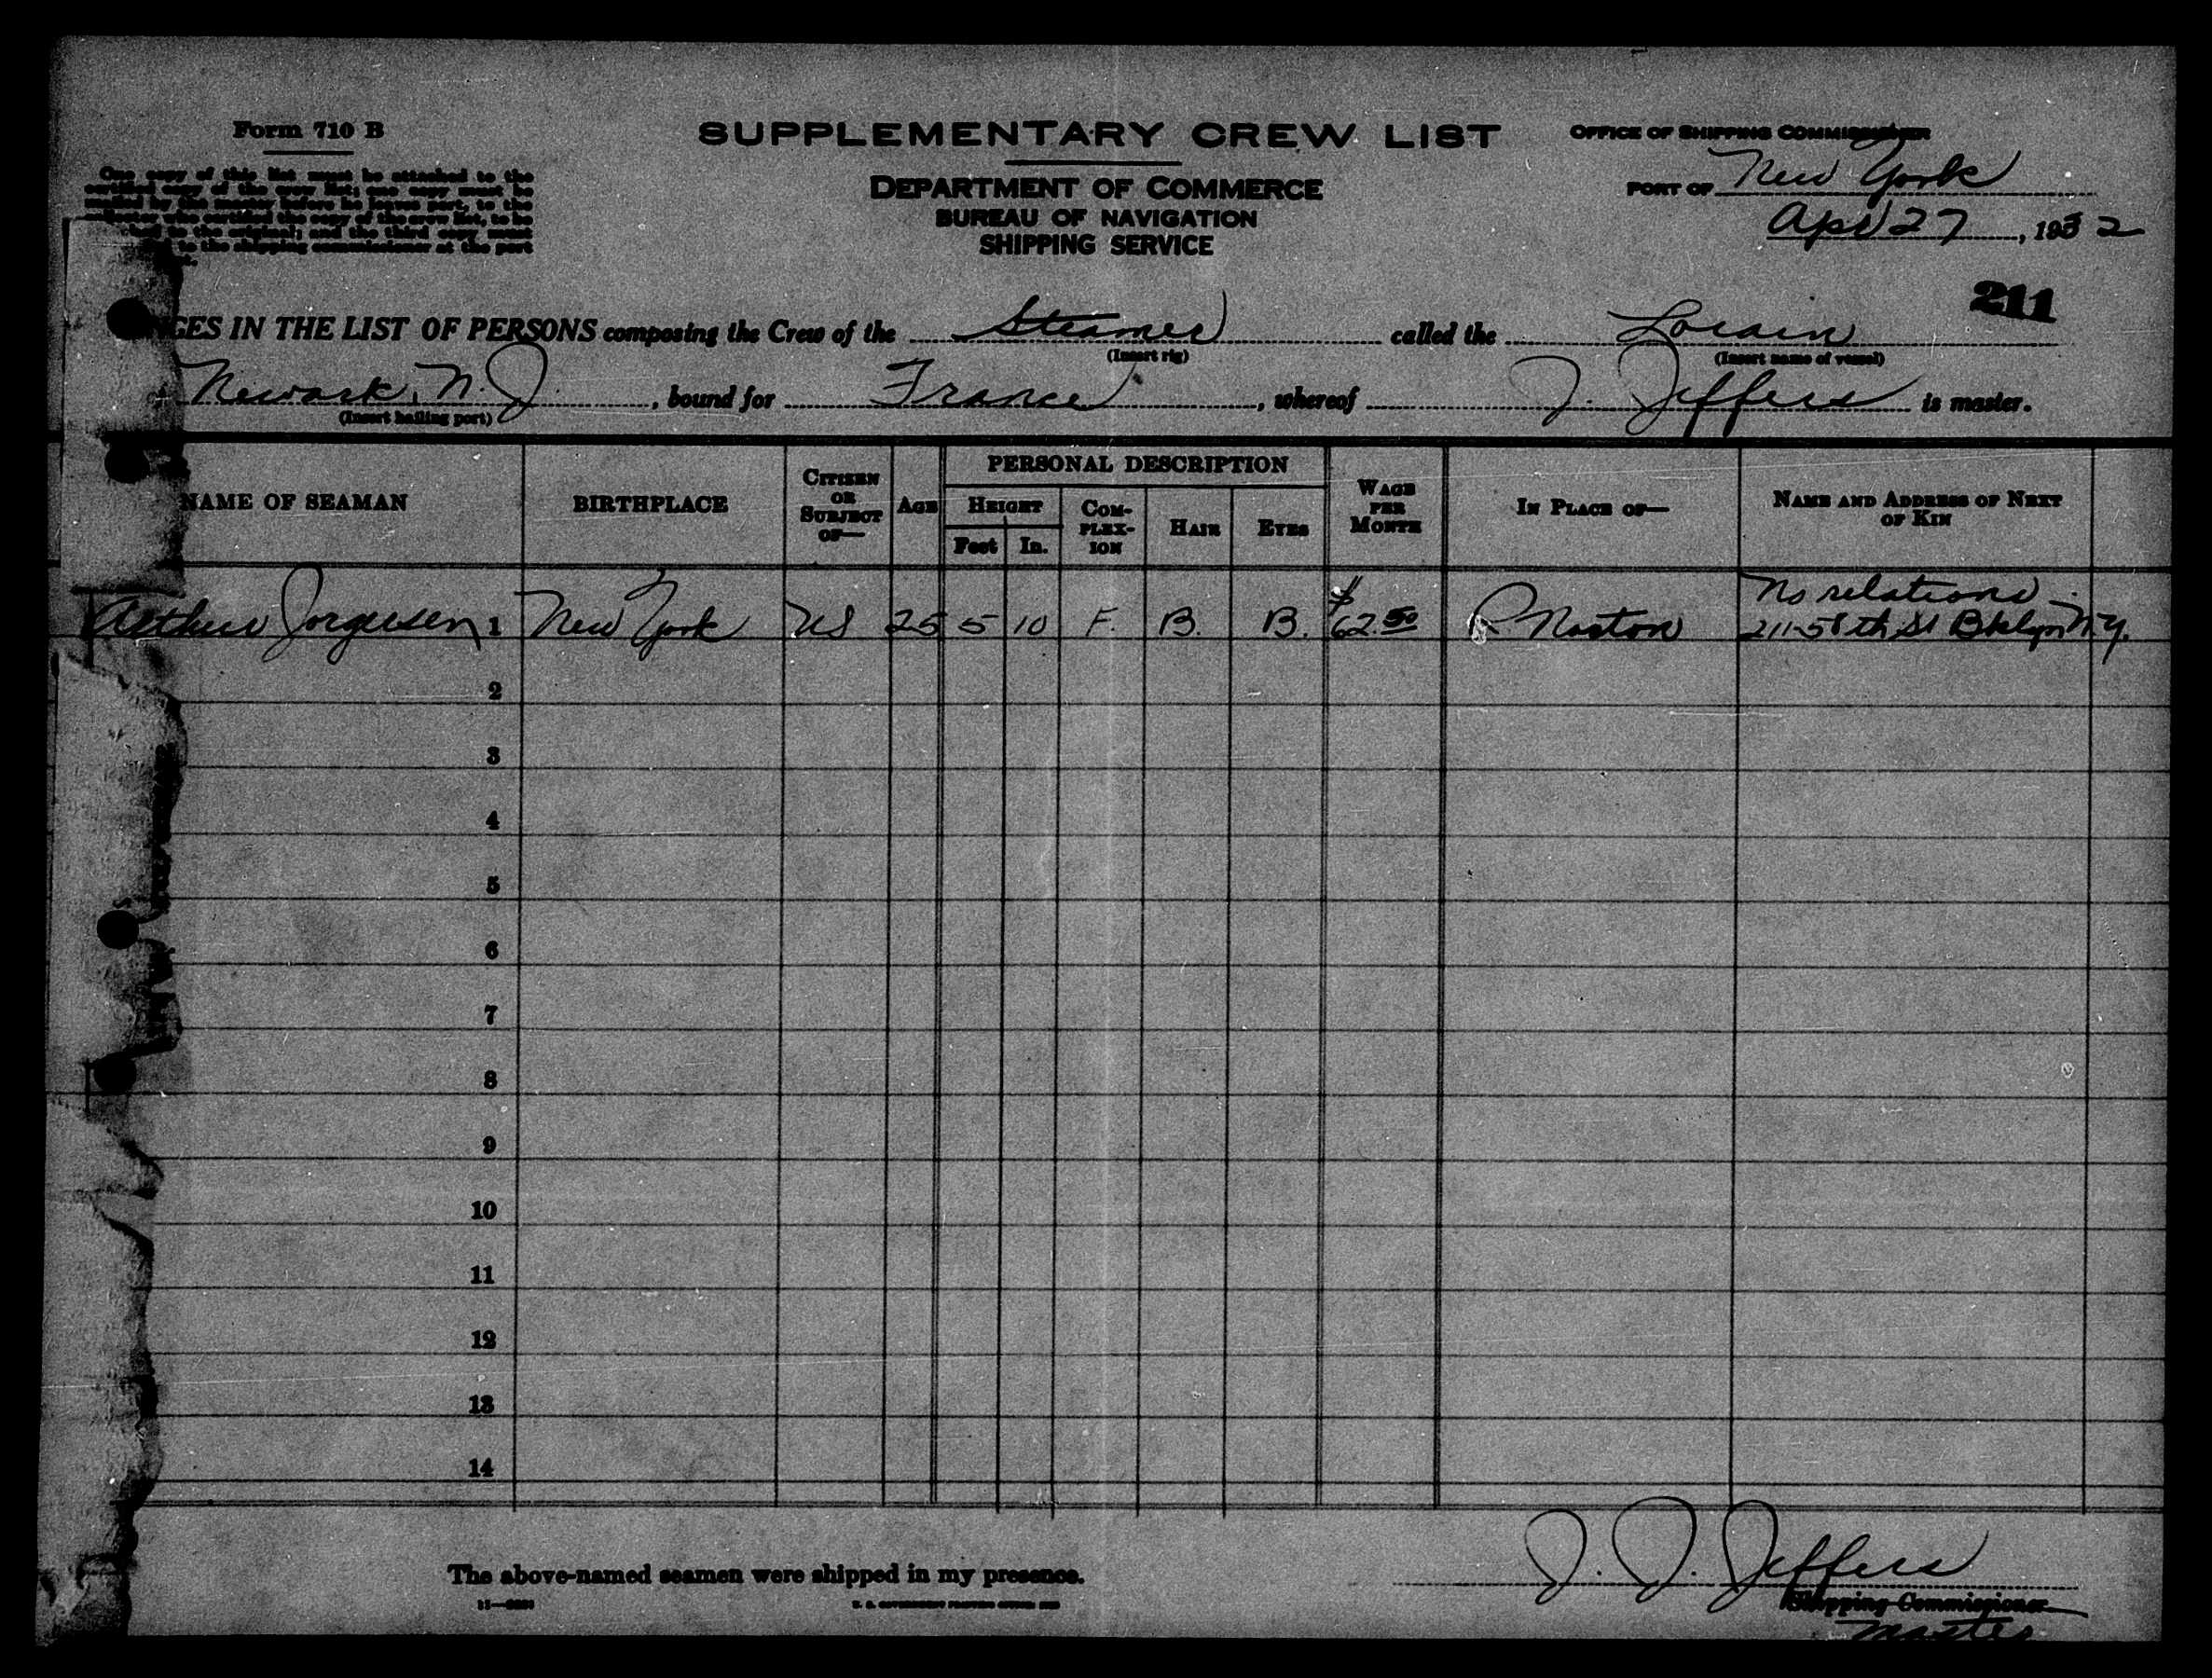 Form 710 B
SUPPLEMENTARY CREW LIST
OFFICE OF SHIPPING COMMISSIONER
One copy of this list must be attached to the
certified copy of the crew list; one copy must be
mailed by the master before he leaves port, to the
who certified the copy of the crew list, to be
to the original; and the third copy must
to the shipping commissioner at the port
DEPARTMENT OF COMMERCE
BUREAU OF NAVIGATION
SHIPPING SERVICE
PORT OF New York
Apr 27, 1932
211
GES IN THE LIST OF PERSONS composing the Crew of the Steamer called the Lorain
(Insert rig) (Insert name of vessel)
Newark, N.J., bound for France, whereof J. Jeffers is master.
(Insert hailing port)
NAME OF SEAMAN BIRTHPLACE CITIZEN OR SUBJECT OF— AGE PERSONAL DESCRIPTION WAGE PER MONTH IN PLACE OF— NAME AND ADDRESS OF NEXT OF KIN
HEIGHT COM-PLEX-ION HAIR EYES
Feet In.
Arthur Jorgusen 1 New York US 25 5 10 F. B. B. $62.50 R Naston No relations -
211-58th St Bklyn N.Y.
2
3
4
5
6
7
8
9
10
11
12
13
14
J. J. Jeffers
The above-named seamen were shipped in my presence.
Shipping Commissioner
U. S. GOVERNMENT PRINTING OFFICE
Master